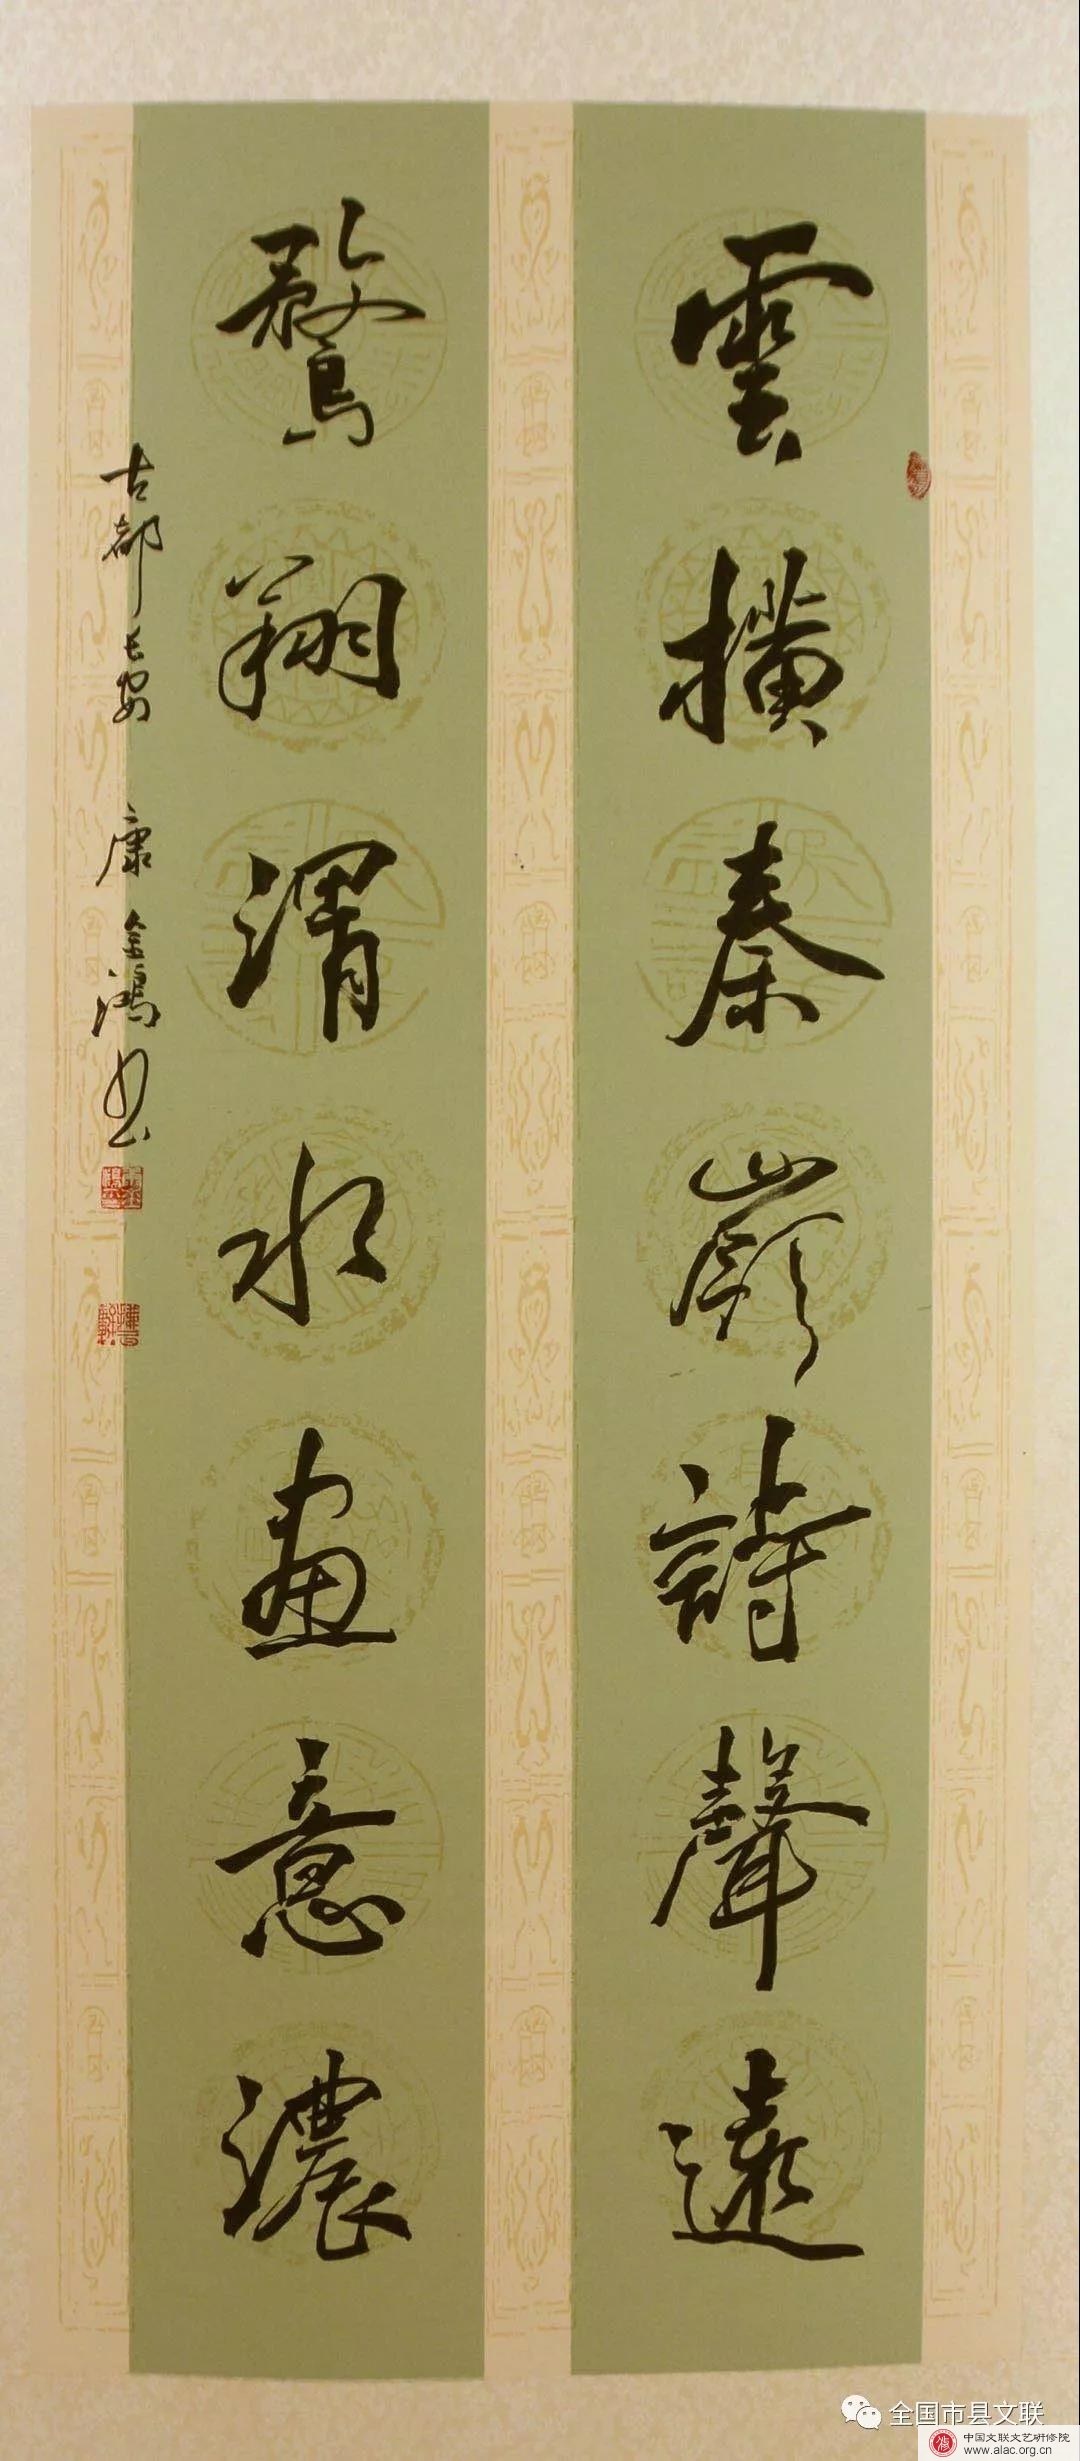 雲橫秦嶺詩聲遠
鷔翔渭水畫意濃
古都長安 康金鴻書
全国市县文联
中国文联文艺研修院
www.alac.org.cn